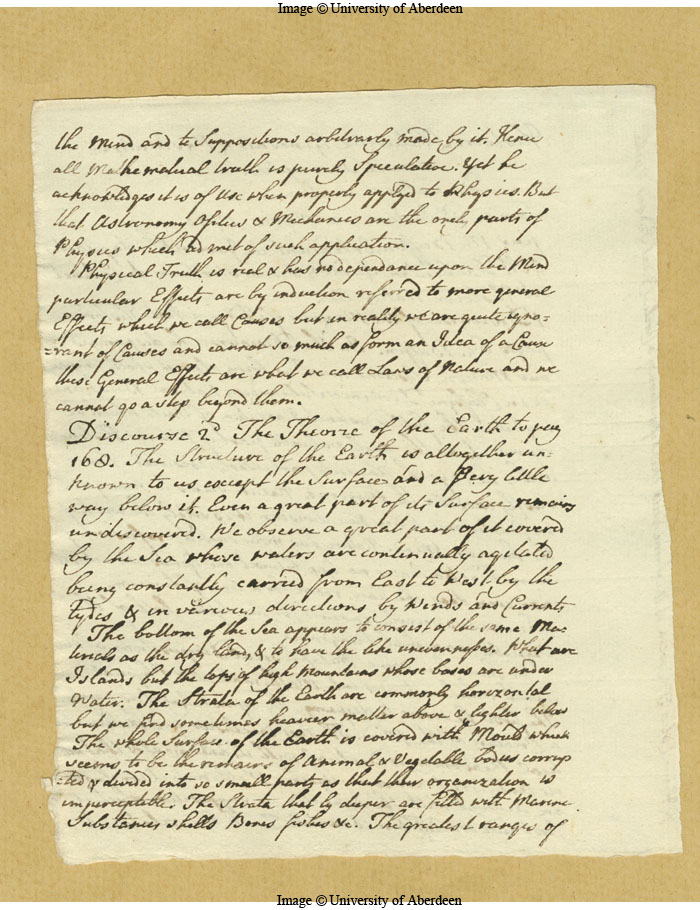 Image © University of Aberdeen
the Mind and to Suppositions arbitrarly made by it. Hence
all Mathematical truth is purely Speculative. Yet he
acknowledges it is of use when properly applyed to Physics. But
that Astronomy Opticks & Mechanics are the only parts of
Physics which admit of such application.
Physical Truth is real & has no dependance upon the Mind
particular Effects are by induction referred to more general
Effects which we call Causes but in reality we are quite igno=
=rant of Causes and cannot so much as form an Idea of a Cause
these General Effects are what we call Laws of Nature and we
cannot go a step beyond them.
Discourse 2d The Theorie of the Earth to pag
168. The Structure of the Earth is altogether un=
known to us except the Surface and a very little
way below it. Even a great part of its Surface remains
undiscovered. We observe a great part of it covered
by the Sea whose waters are continually agitated
being constantly carried from East to West by the
tydes & in various directions by Winds and Currents
The bottom of the Sea appears to consist of the same Ma=
terials as the dry land, & to have the like unevennesses. What are
Islands but the tops of high Mountains whose bases are under
Water. The Strata of the Earth are commonly horezontal
but we find sometimes heavier matter above & lighter below
The whole Surface of the Earth is covered with Mould which
seems to be the remains of Animal & Vegetable bodies corrup
=ted & divided into so small parts as that their organization is
imperceptible. The Strata that ly deeper are filled with Marine
Substances shells Bones fishes &c. The greatest ranges of
Image © University of Aberdeen